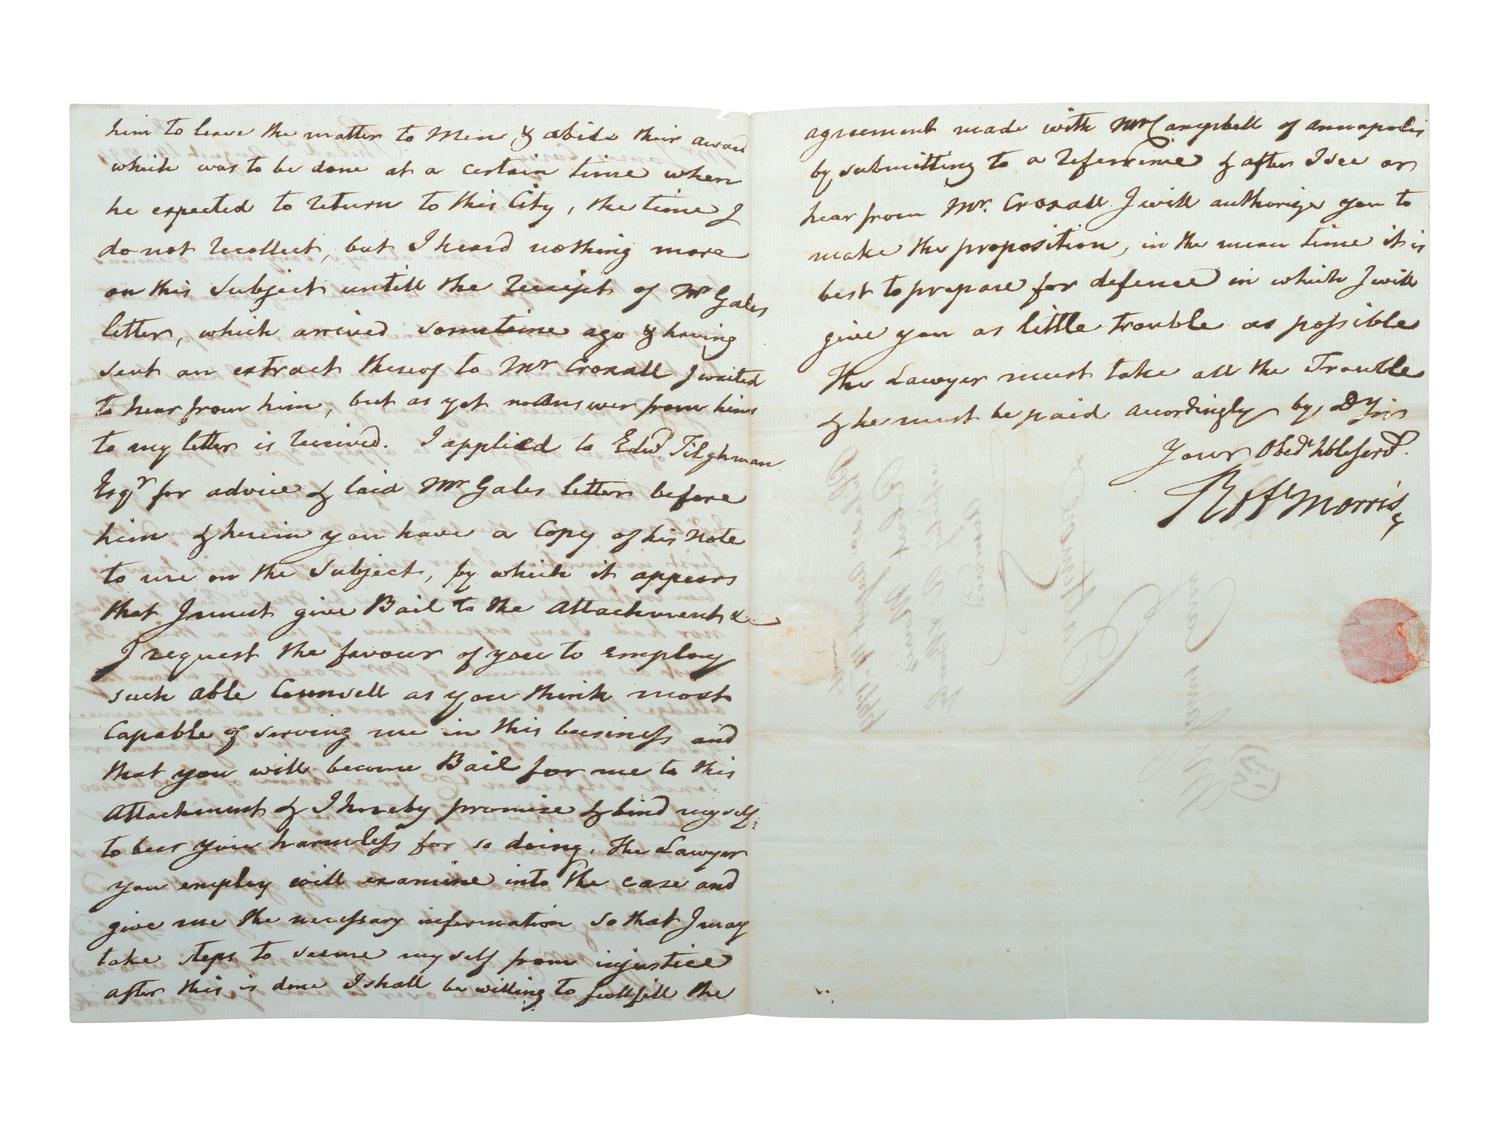 him to leave the matter to Men & abide their award
which was to be done at a certain time when
he expected to return to this City, the time I
do not recollect, but I heard nothing more
on this subject untill the receipt of Mr Gales
letter, which arrived sometime ago & having
sent an extract thereof to Mr Croxall I waited
to hear from him, but as yet no answer from him
to my letter is received. I applied to Edwd Tilghman
Esqr for advice & laid Mr Gales letter before
him & herein you have a Copy of his Note
to me on the subject, by which it appears
that I must give Bail to the Attachment &
I request the favour of you to employ
such able Councell as you think most
Capable of serving me in this business and
that you will become Bail for me to this
Attachment & I hereby promise & bind myself
to bear you harmless for so doing. The Lawyer
you employ will examine into the case and
give me the necessary information so that I may
take steps to secure myself from injustice
after this is done I shall be willing to fullfill the
agreement made with Mr Campbell of Annapolis
by submitting to a refference & after I see or
hear from Mr. Croxall I will authorize you to
make the proposition, in the mean time it is
best to prepare for defence in which I will
give you as little trouble as possible
The Lawyer must take all the Trouble
& he must be paid accordingly by, D Sir
Your Obedt Hble Servt.
Robt Morris